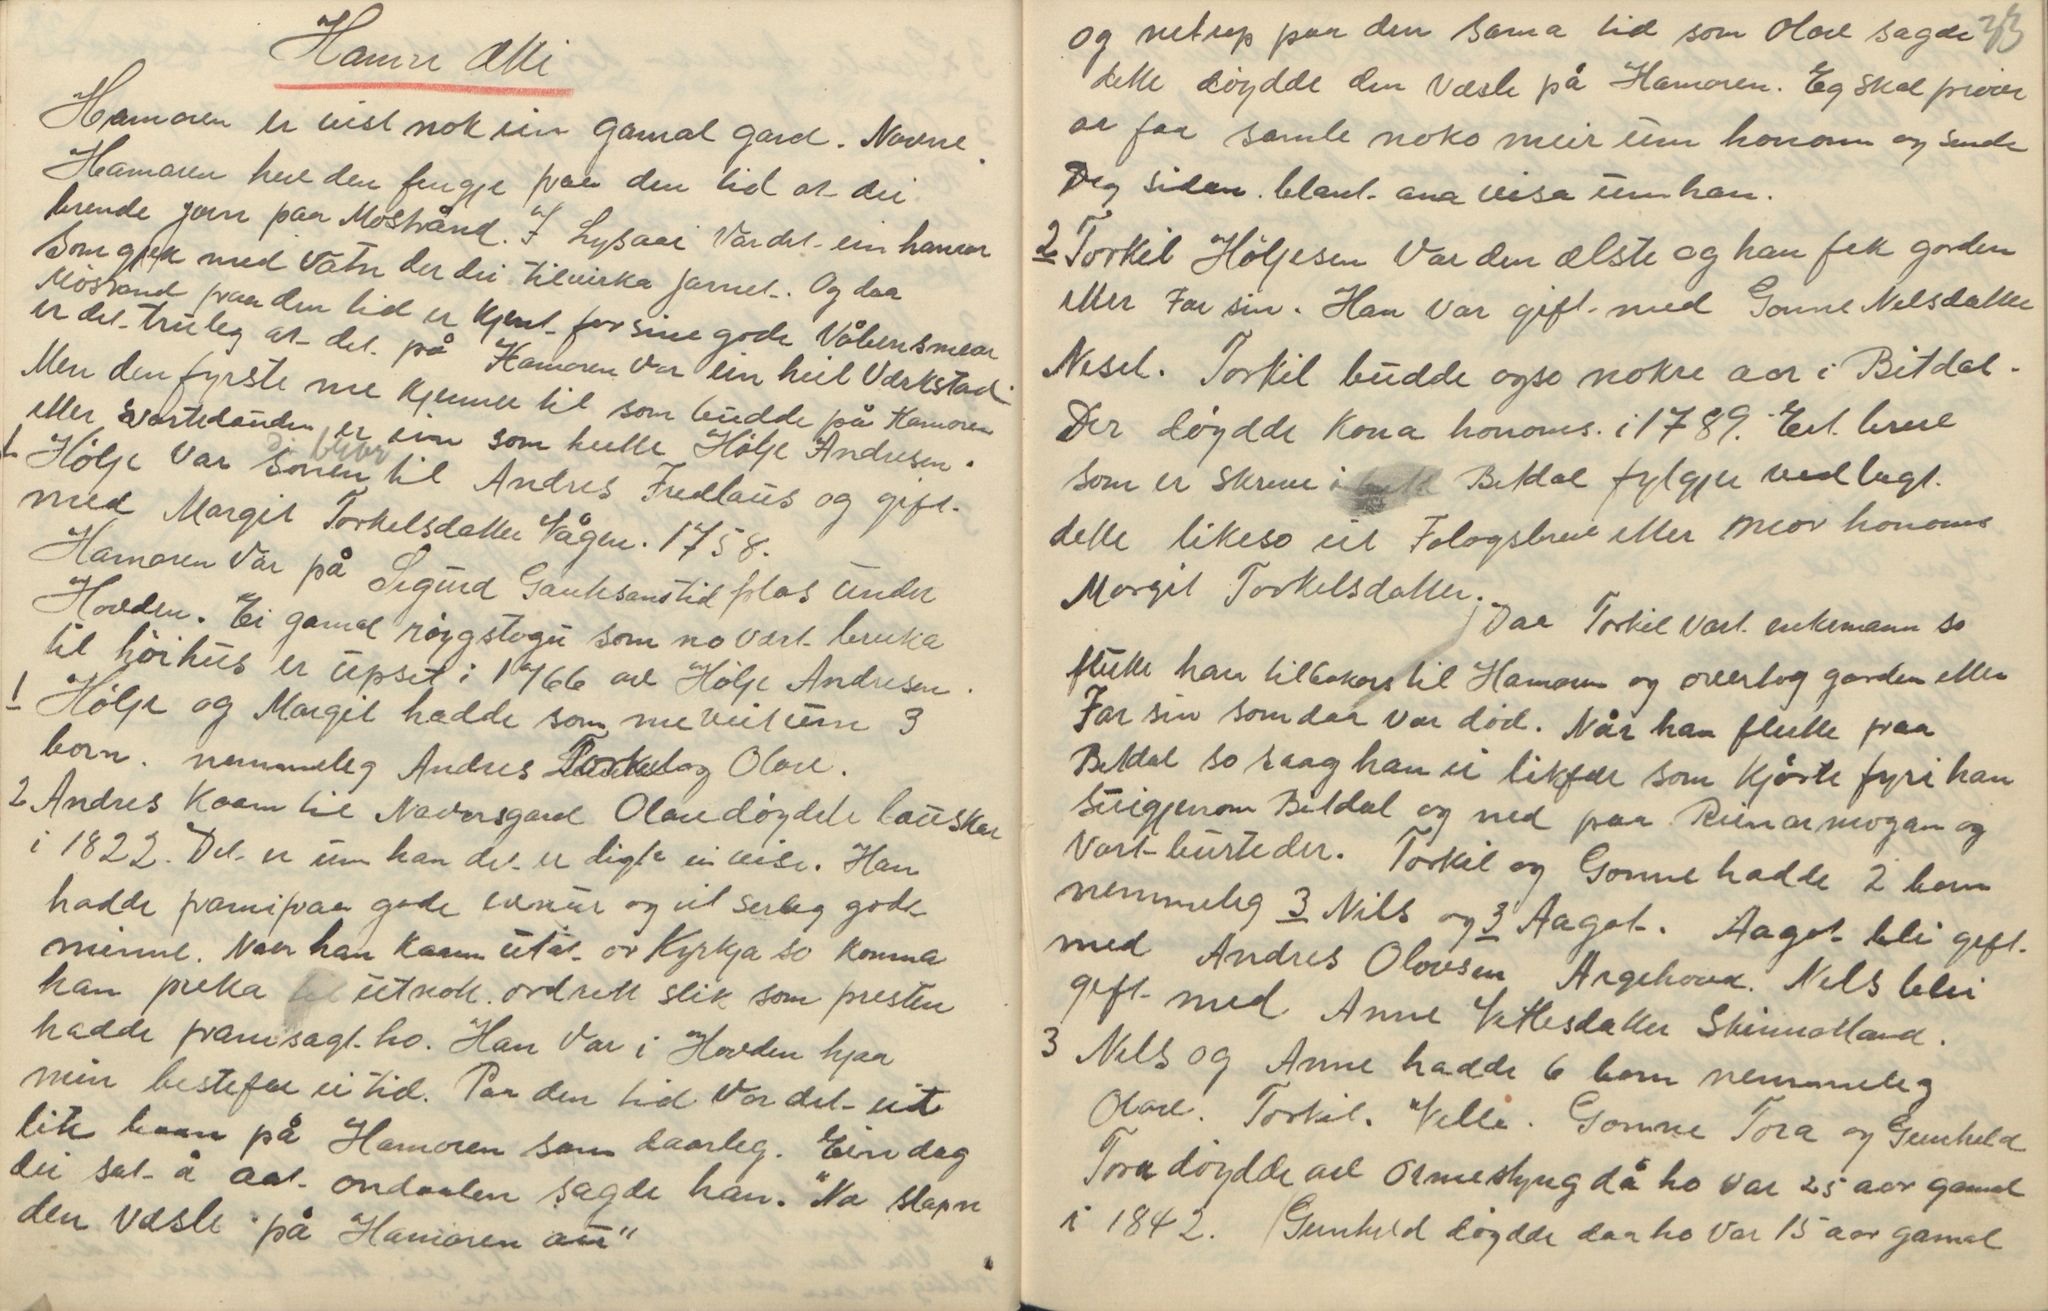 Hamre Ætti
Hamaren er vist nok ein gamal gard. Navne
Hamaren heve den fengje fraa den tid at dei
brende jarn paa Møstrånd. I Lysaai var det ein hamar
som gjek med vatn der dei tilvirka jarnet. Og daa
Møstrand fraa den tid er kjent for sine gode Våbensmear
er det truleg at det på Hamaren var ein heil Værkstad.
Men den fyrste me kjenner til som budde på Hamaren
etter Svartedauden er ein som heitte Hølje Andresen.
1 Hølje var sonen til Andres Fredlaus og gift
med Margit Torkelsdatter Vågen. 1758.
Hamaren var på Sigurd Gauksons tid plas under
Hovden. Ei gamal røygstogu som no vart bruka
til høihus er upset i 1766 av Hølje Andresen.
1 Hølje og Margit hadde som me veit um 3
born. nemmeleg Andres Torkel og Olav.
2 Andres kaam til Naversgard Olav døydde lauskar
i 1822. Det er um han det er digta ei vise. Han
hadde framifraa gode evnur og eit serleg godt
minne. Naar han kaam utat or Kyrkja so konna
han preka utnok. ordrett slik som presten
hadde framsagt ho. Han var i Hovden hjaa
min bestefar ei tid. Paa den tid var det eit
lite baan på Hamaren som daarleg. Ein dag
dei sat å aat ondaalen sagde han. "No slapn
den Væsle på Hamaren au"
33
og netrup paa den sama tid som Olav sagde
dette døydde den væsle på Hamaren. Eg skal prøva
aa faa samle noko meir um honom og sende
Deg sidan. blant ana visa um han.
2 Torkil Høljesen var den ælste og han fek garden
etter Far sin. Han var gift med Gonne Nelsdatter
Nesel. Torkil budde ogso nokre aar i Bitdal.
Der døydde kona honoms. i 1789. Eit brev
som er skreve i Bitdal fylgjer vedlagt.
dette likeso eit Fologsbrev etter mor honoms
Margit Torkelsdatter.
Daa Torkil vart enkemann so
flutte han tilbakars til Hamaren og overtog garden etter
Far sin som daa var død. Når han flutte fraa
Bitdal so saag han ei likfær som kjørte fyri han
ut igjenom Bitdal og ned paa og
vart burte der. Torkil og Gonne hadde 2 born
nemmeleg 3 Nils og 3 Aagot. Aagot blei gift
med Andres Olavsen Argehovd. Nels blei
gift med Anne Vetlesdatter Skinnarland.
3 Nels og Anne hadde 6 born nemmeleg
Olav. Torkil. Vetle. Gonne Tora og Gunhild
Tora døydde av Ormestyng då ho var 25 aar gamal
i 1842. Gunhild døydde daa ho var 15 aar gamal